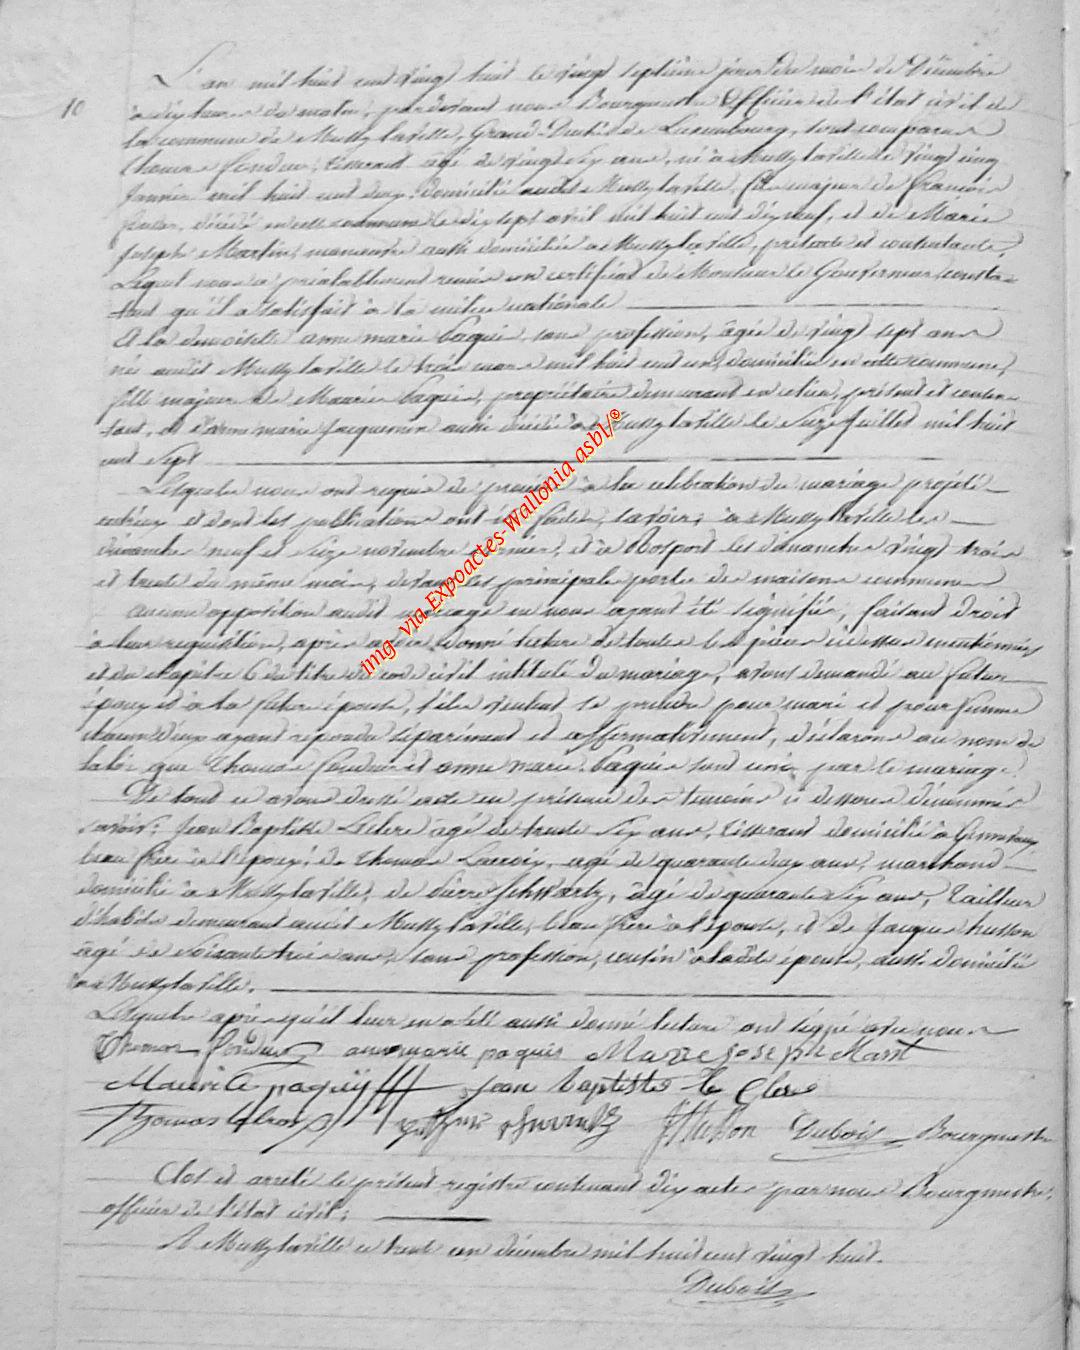 L'an mil huit cent vingt huit le vingt septième jour du mois de Décembre
10
à dix heures du matin, pardevant nous Bourgmestre Officier de l'état civil de
la commune de Mussy la ville, Grand-Duché de Luxembourg, sont comparus
Thomas tisserand âgé de vingt six ans, né à Mussy la ville le vingt cinq
Janvier mil huit cent deux, domicilié audit Mussy la ville, fils majeur de François
décédé en cette commune le dix sept avril mil huit cent dix neuf, et de Marie
Joseph Martin, manœuvre aussi domiciliée à Mussy la ville, présente et consentante,
Lequel nous a préalablement remis un certificat de Monsieur le Gouverneur consta-
tant qu'il a satisfait à la milice nationale
Et la demoiselle anne marie Paquis, sans profession, âgée de vingt sept ans
née audit Mussy la ville le trois mars mil huit cent un, domiciliée en cette commune,
fille majeure de Maurice Paquis, propriétaire demeurant en celieu, présent et consen-
tant, et d'anne marie Jacquemin aussi décédée à Mussy la ville le seize Juillet mil huit
cent sept
Lesquels nous ont requis de procéder à la célébration du mariage projeté
entr'eux et dont les publications ont été faites, savoir; à Mussy la ville les
dimanches neuf et seize novembre dernier, et à Rosport les dimanches vingt trois
et trente du même mois, devant les principales portes des maisons communes
aucune opposition audit mariage ne nous ayant été signifiée, faisant droit
à leur requisition, après avoir donné lecture de toutes les pièces ci dessus mentionnées
et du chapitre 6 du titre du code civil intitulé du mariage, avons demandé au futur
époux et à la future épouse, s'ils veulent se prendre pour mari et pour femme
chacun d'eux ayant répondu séparément et affirmativement, déclarons au nom de
la loi que Thomas et anne marie Paquis sont unis par le mariage.
De tout ce avons dressé acte en présence des temoins ci dessous dénommés
savoir: Jean Baptiste Leclerc âgé de trente six ans, tisserand domicilié à
beau frère à l'époux, de Thomas Lacroix, agé de quarante deux ans, marchand
domicilié à Mussy la ville, de pierre Schwartz, âgé de quarante six ans, tailleur
d'habits demeurant audit Mussy la ville, beau frère à l'épouse, et de Jacques husson
âgé de soixante trois ans, sans profession, cousin à ladite épouse, aussi domicilié
à Mussy la ville.
Lesquels après qu'il leur en a été aussi donné lecture ont signé avec nous
Thomas anne marie paquis Marie Joseph Mart
Maurice paquis Jean baptiste le Clere
Thomas Lacroix J Husson Dubois Bourgmestre
Clos et arrêté le présent registre contenant dix actes par nous Bourgmestre,
officier de l'état civil;
A Mussy la ville ce trente un décembre mil huit cent vingt huit.
Dubois
img- via Expoactes-Wallonia asbl/®